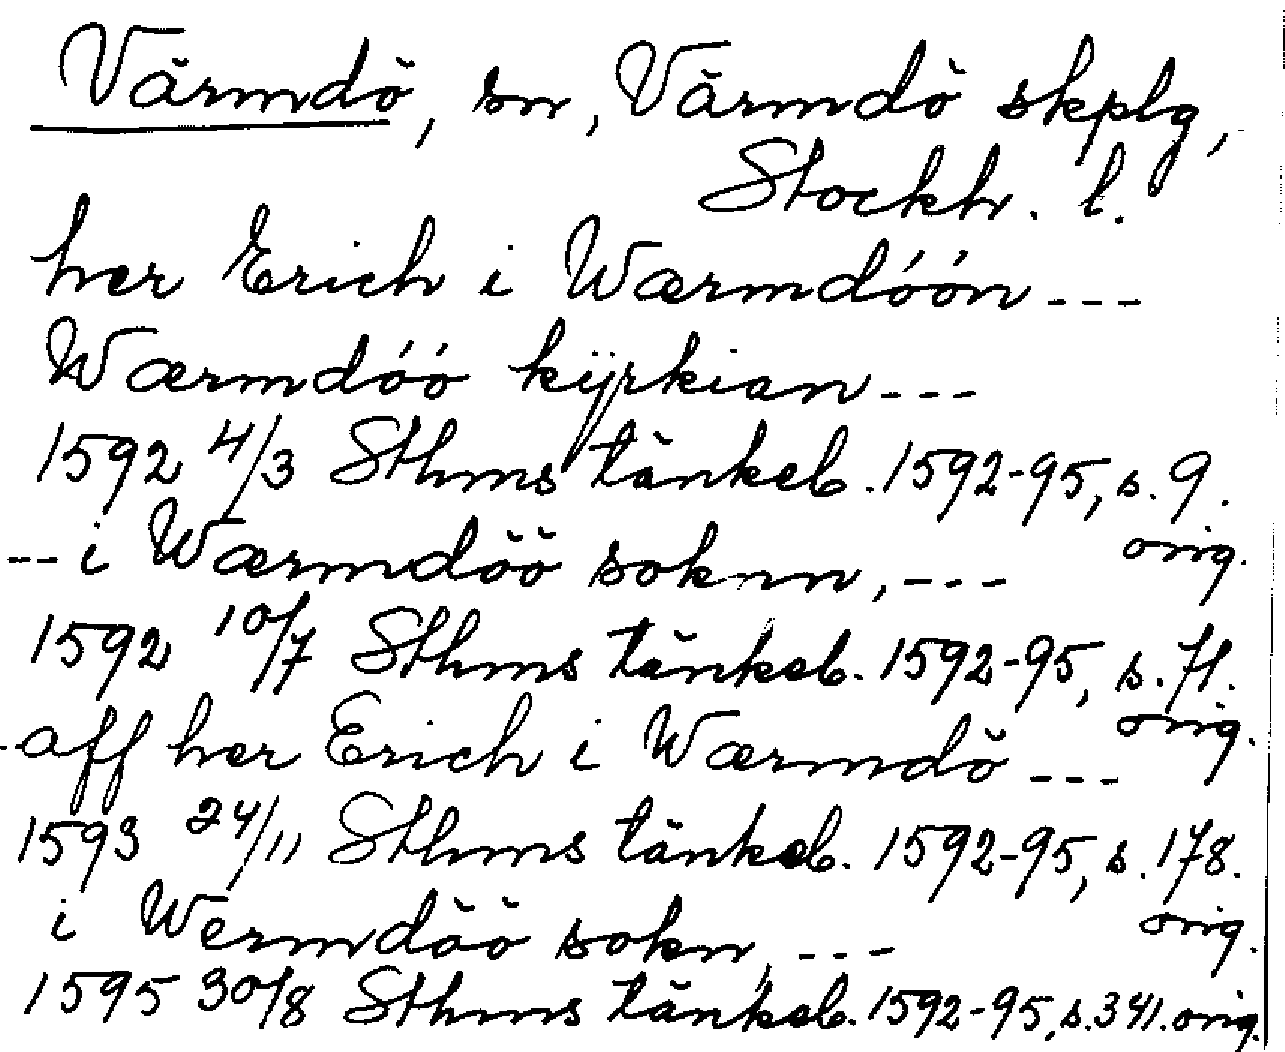 Värmdö, sn, Värmdö skplg,
Stockh. l.
her Erich i Wærmdóón ---
Wærmdóó kÿrkian ---
1592 4/3 Sthms tänkeb. 1592-95, s. 9.
orig.
-- i Wærmdöö soknn, ---
1592 10/7 Sthms tänkeb. 1592-95, s. 71.
orig.
- aff her Erich i Wærmdö ---
1593 24/11 Sthms tänkeb. 1592-95, s. 178.
orig.
i Wermdöö sokn, ---
1595 30/8 Sthms tänkeb. 1592-95, s. 341. orig.